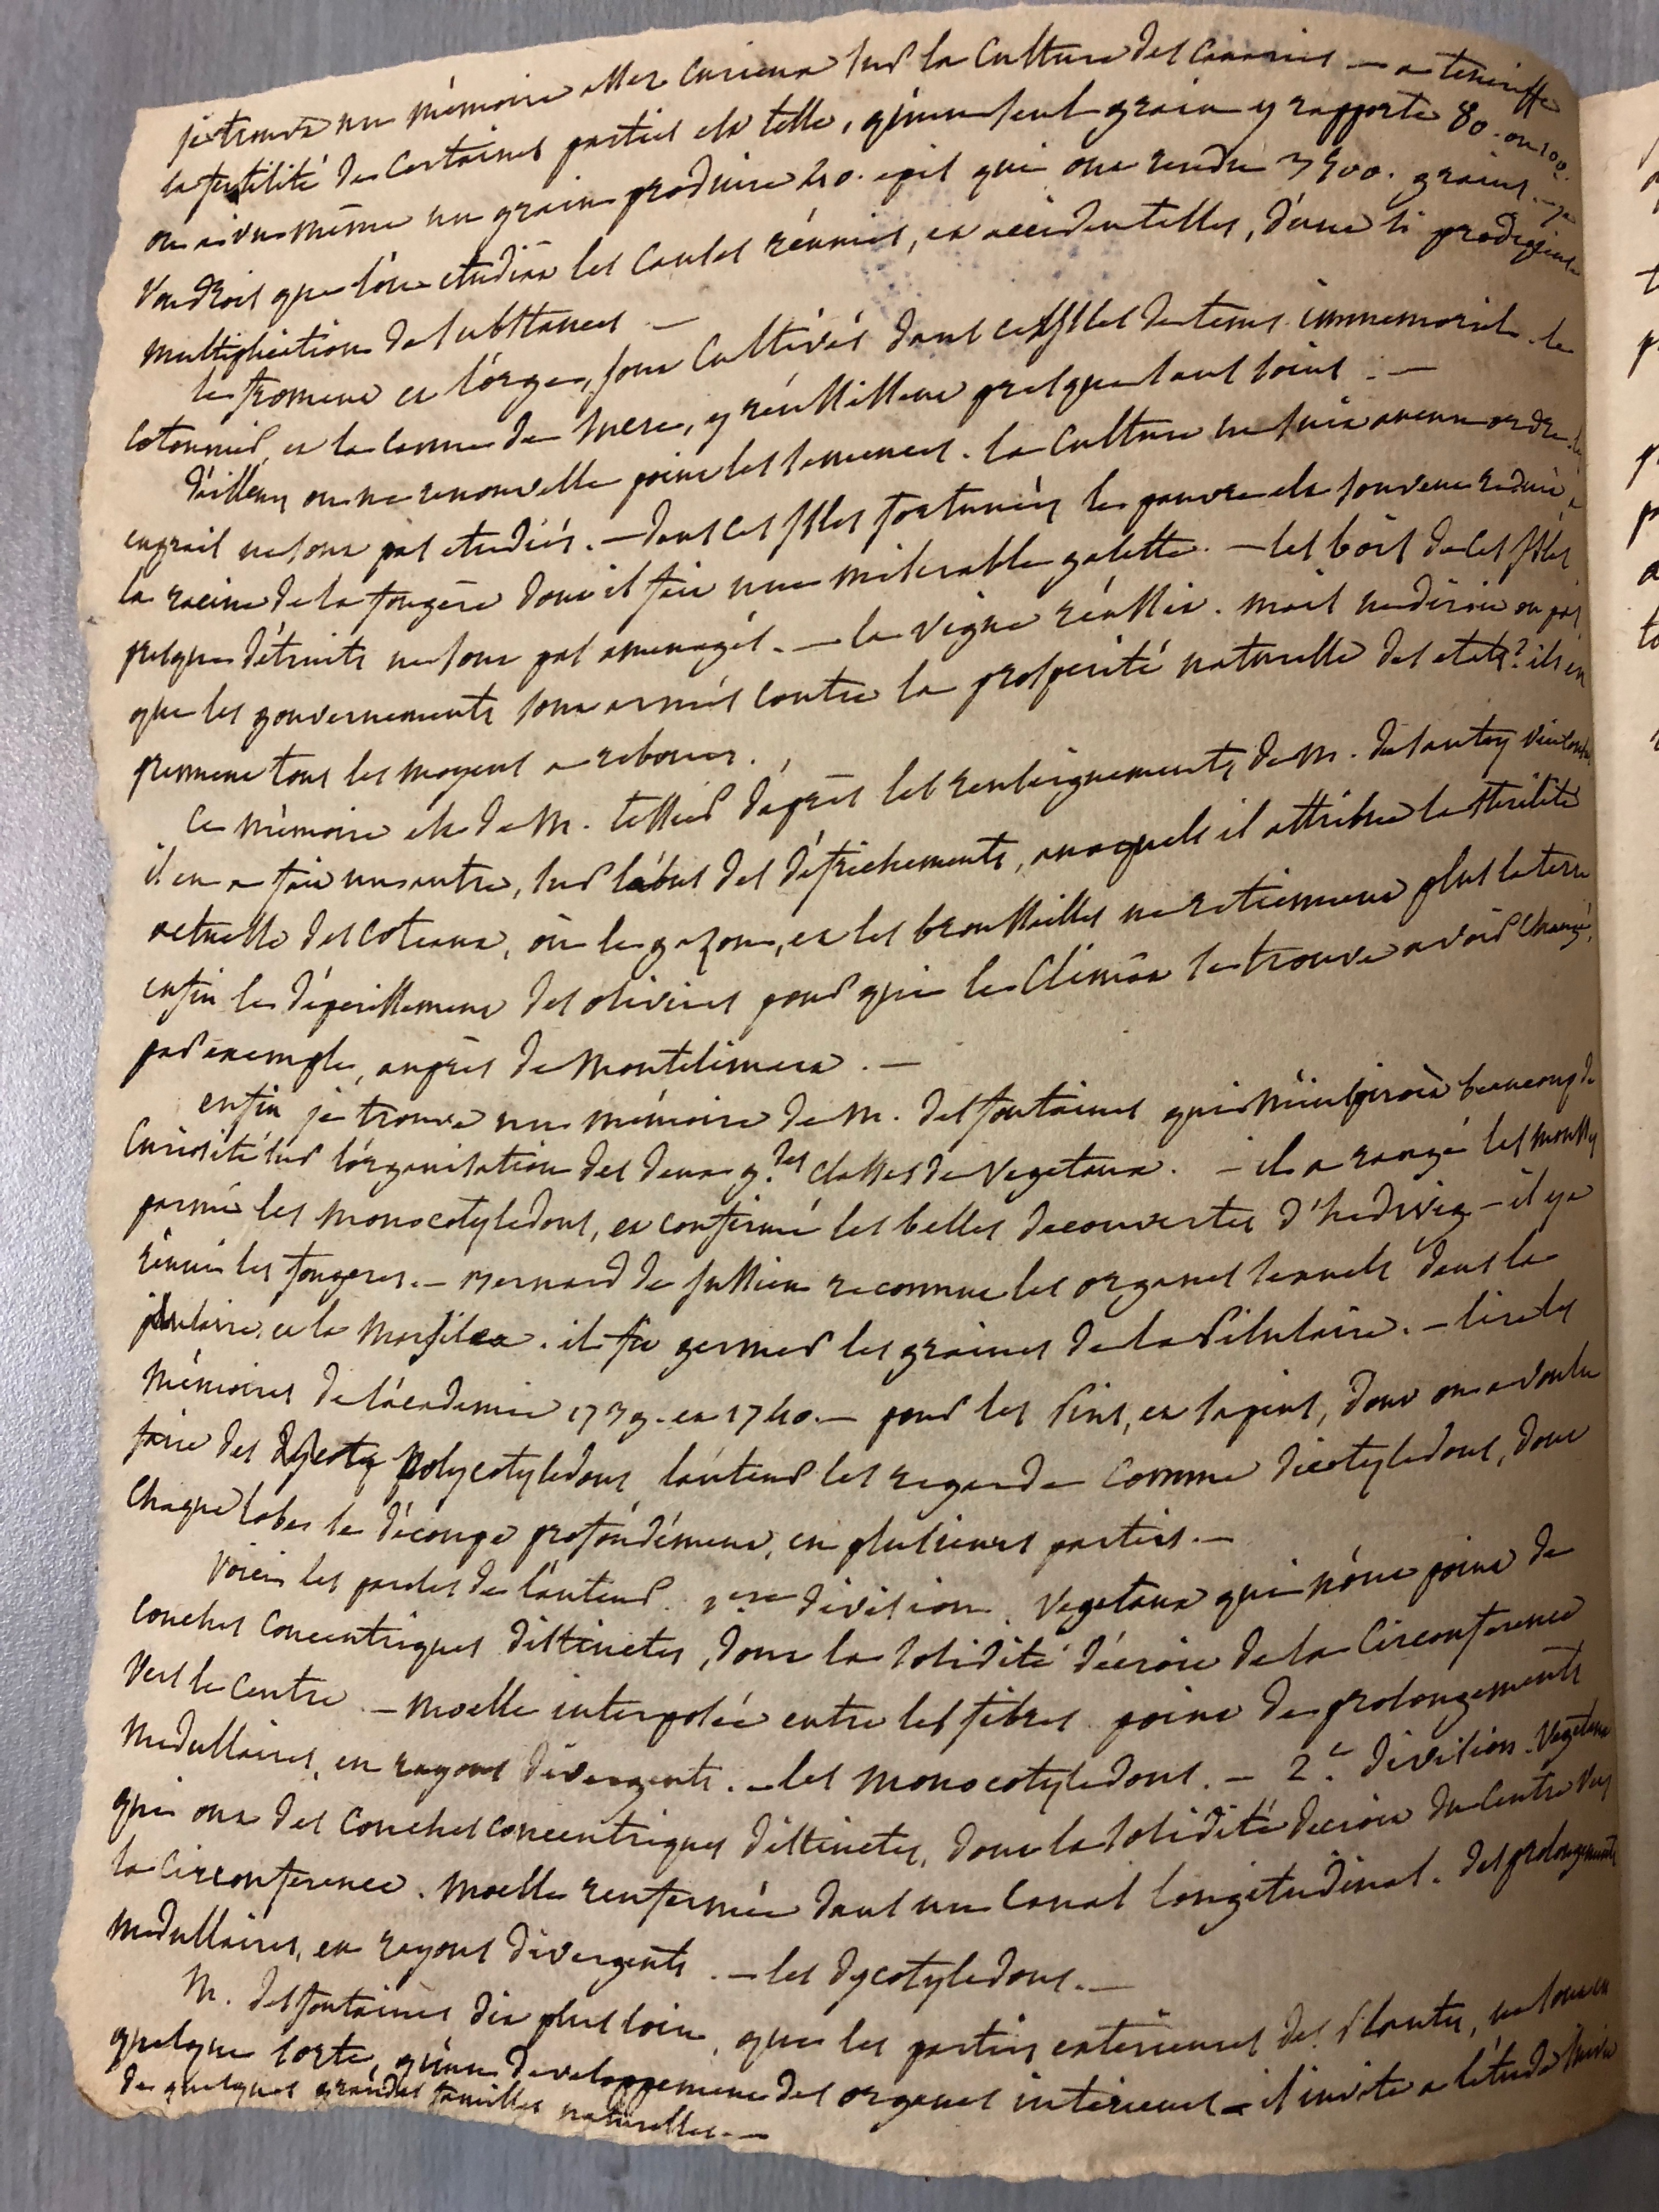 je trouve un mémoire assez curieux sur la culture des canaries — a teneriffe
la fertilité de certaines parties est telle, qu'un seul grain y rapporte 80. ou 100.
on a vu même un grain produire 40. epis qui ont rendu grains. — je
voudrois que l'on etudiât les causes réunies, et accidentelles, d'une si prodigieuse
multiplication de substances —
le froment et l'orge, sont cultivés dans ces isles de tems immemorial. le
cotonnier, et la canne de sucre, y réussissent presque sans soins . —
d'ailleurs on ne renouvelle point les semences. la culture ne suit aucun ordre. les
engrais ne sont pas etudiés. — dans ces isles fortunées le pauvre est souvent reduit, a
la racine de la fougère dont il fait une miserable galette. — les bois de ces isles
presque détruits ne sont pas amenagés. — la vigne réussit. mais ne diroit on pas
que les gouvernements sont armés contre la prosperité naturelle des etats? ils en
prennent tous les moyens a rebours.
ce mémoire est de M. tessier d'après les renseignements de M.
il en a fait un autre, sur l'abus des défrichements, auxquels il attribue la sterilité
actuelle des coteaux, où le gazon, et les broussailles ne retiennent plus la terre
enfin le dépérissement des oliviers pour qui le climat se trouve avoir changé,
par exemple, auprès de Montelimart . —
enfin je trouve un mémoire de M. desfontaines qui m'inspiroit beaucoup de
curiosité sur l'organisation des deux g.des classes de vegetaux. — il a rangé les mousses
parmi les monocotyledons, et confirmé les belles decouvertes d'hedwig — il y a
réuni les fougeres. — Bernard de Jussieu reconnut les organes sexuels dans la
pilulaire, et la Marsilea. il fit germer les graines de la Pilulaire. — lire les
mémoires de l'academie 1739. et 1740. — pour les Pins, et sapins, dont on a voulu
faire des polycotyledons, l'auteur les regarde comme dicotyledons, dont
chaque lobe se découpe profondément, en plusieurs parties. —
voici les paroles de l'auteur. 1ere division. vegetaux qui n'ont point de
couches concentriques distinctes, dont la solidité décroit de la circonference
vers le centre — moelle interposée entre les fibres. point de prolongements
medullaires, en rayons divergents. — les monocotyledons. — 2.e division. vegetaux
qui ont des couches concentriques distinctes, dont la solidité decroit du centre vers
la circonference. moelle renfermée dans un canal longitudinal. des prolongements
medullaires, en rayons divergents. — les dycotyledons. —
M. desfontaines dit plus loin, que les parties exterieures des Plantes, ne sont en
quelque sorte, qu'un developpement des organes intérieurs — il invite a l'étude suivie
de quelques grandes familles naturelles. —